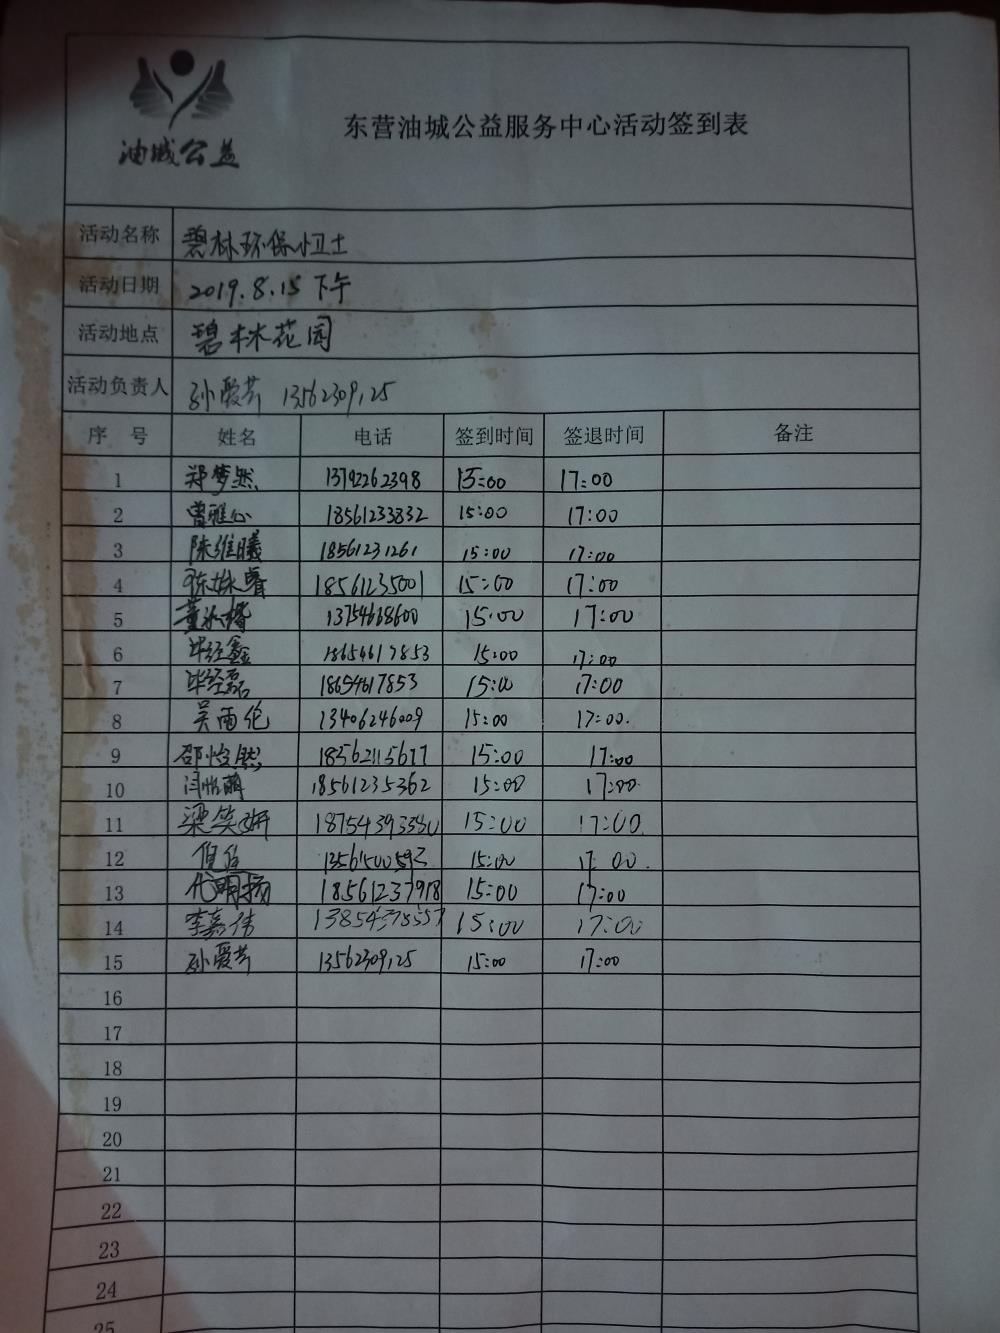 油城公益
东营油城公益服务中心活动签到表
活动名称 碧林环保小卫士
活动日期 2019.8.15 下午
活动地点 碧林花园
活动负责人 孙爱芳 13562309125
序 号 姓名 电话 签到时间 签退时间 备注
1 郑梦然 13792262398 15:00 17:00
2 曹雅心 18561233832 15:00 17:00
3 陈维曦 18561231261 15:00 17:00
4 陈姝睿 18561235001 15:00 17:00
5 13754668600 15:00 17:00
6 毕经鑫 18654617853 15:00 17:00
7 毕经磊 18654617853 15:00 17:00
8 吴雨伦 13406246009 15:00 17:00.
9 邵怡然 18562115677 15:00 17:00
10 闫怡萌 18561235362 15:00 17:00
11 梁笑妍 18754393380 15:00 17:00
12 15:00 17:00.
13 代明扬 18561237918 15:00 17:00
14 李嘉伟 15:00 17:00
15 孙爱芳 13562309125 15:00 17:00
16
17
18
19
20
21
22
23
24
25